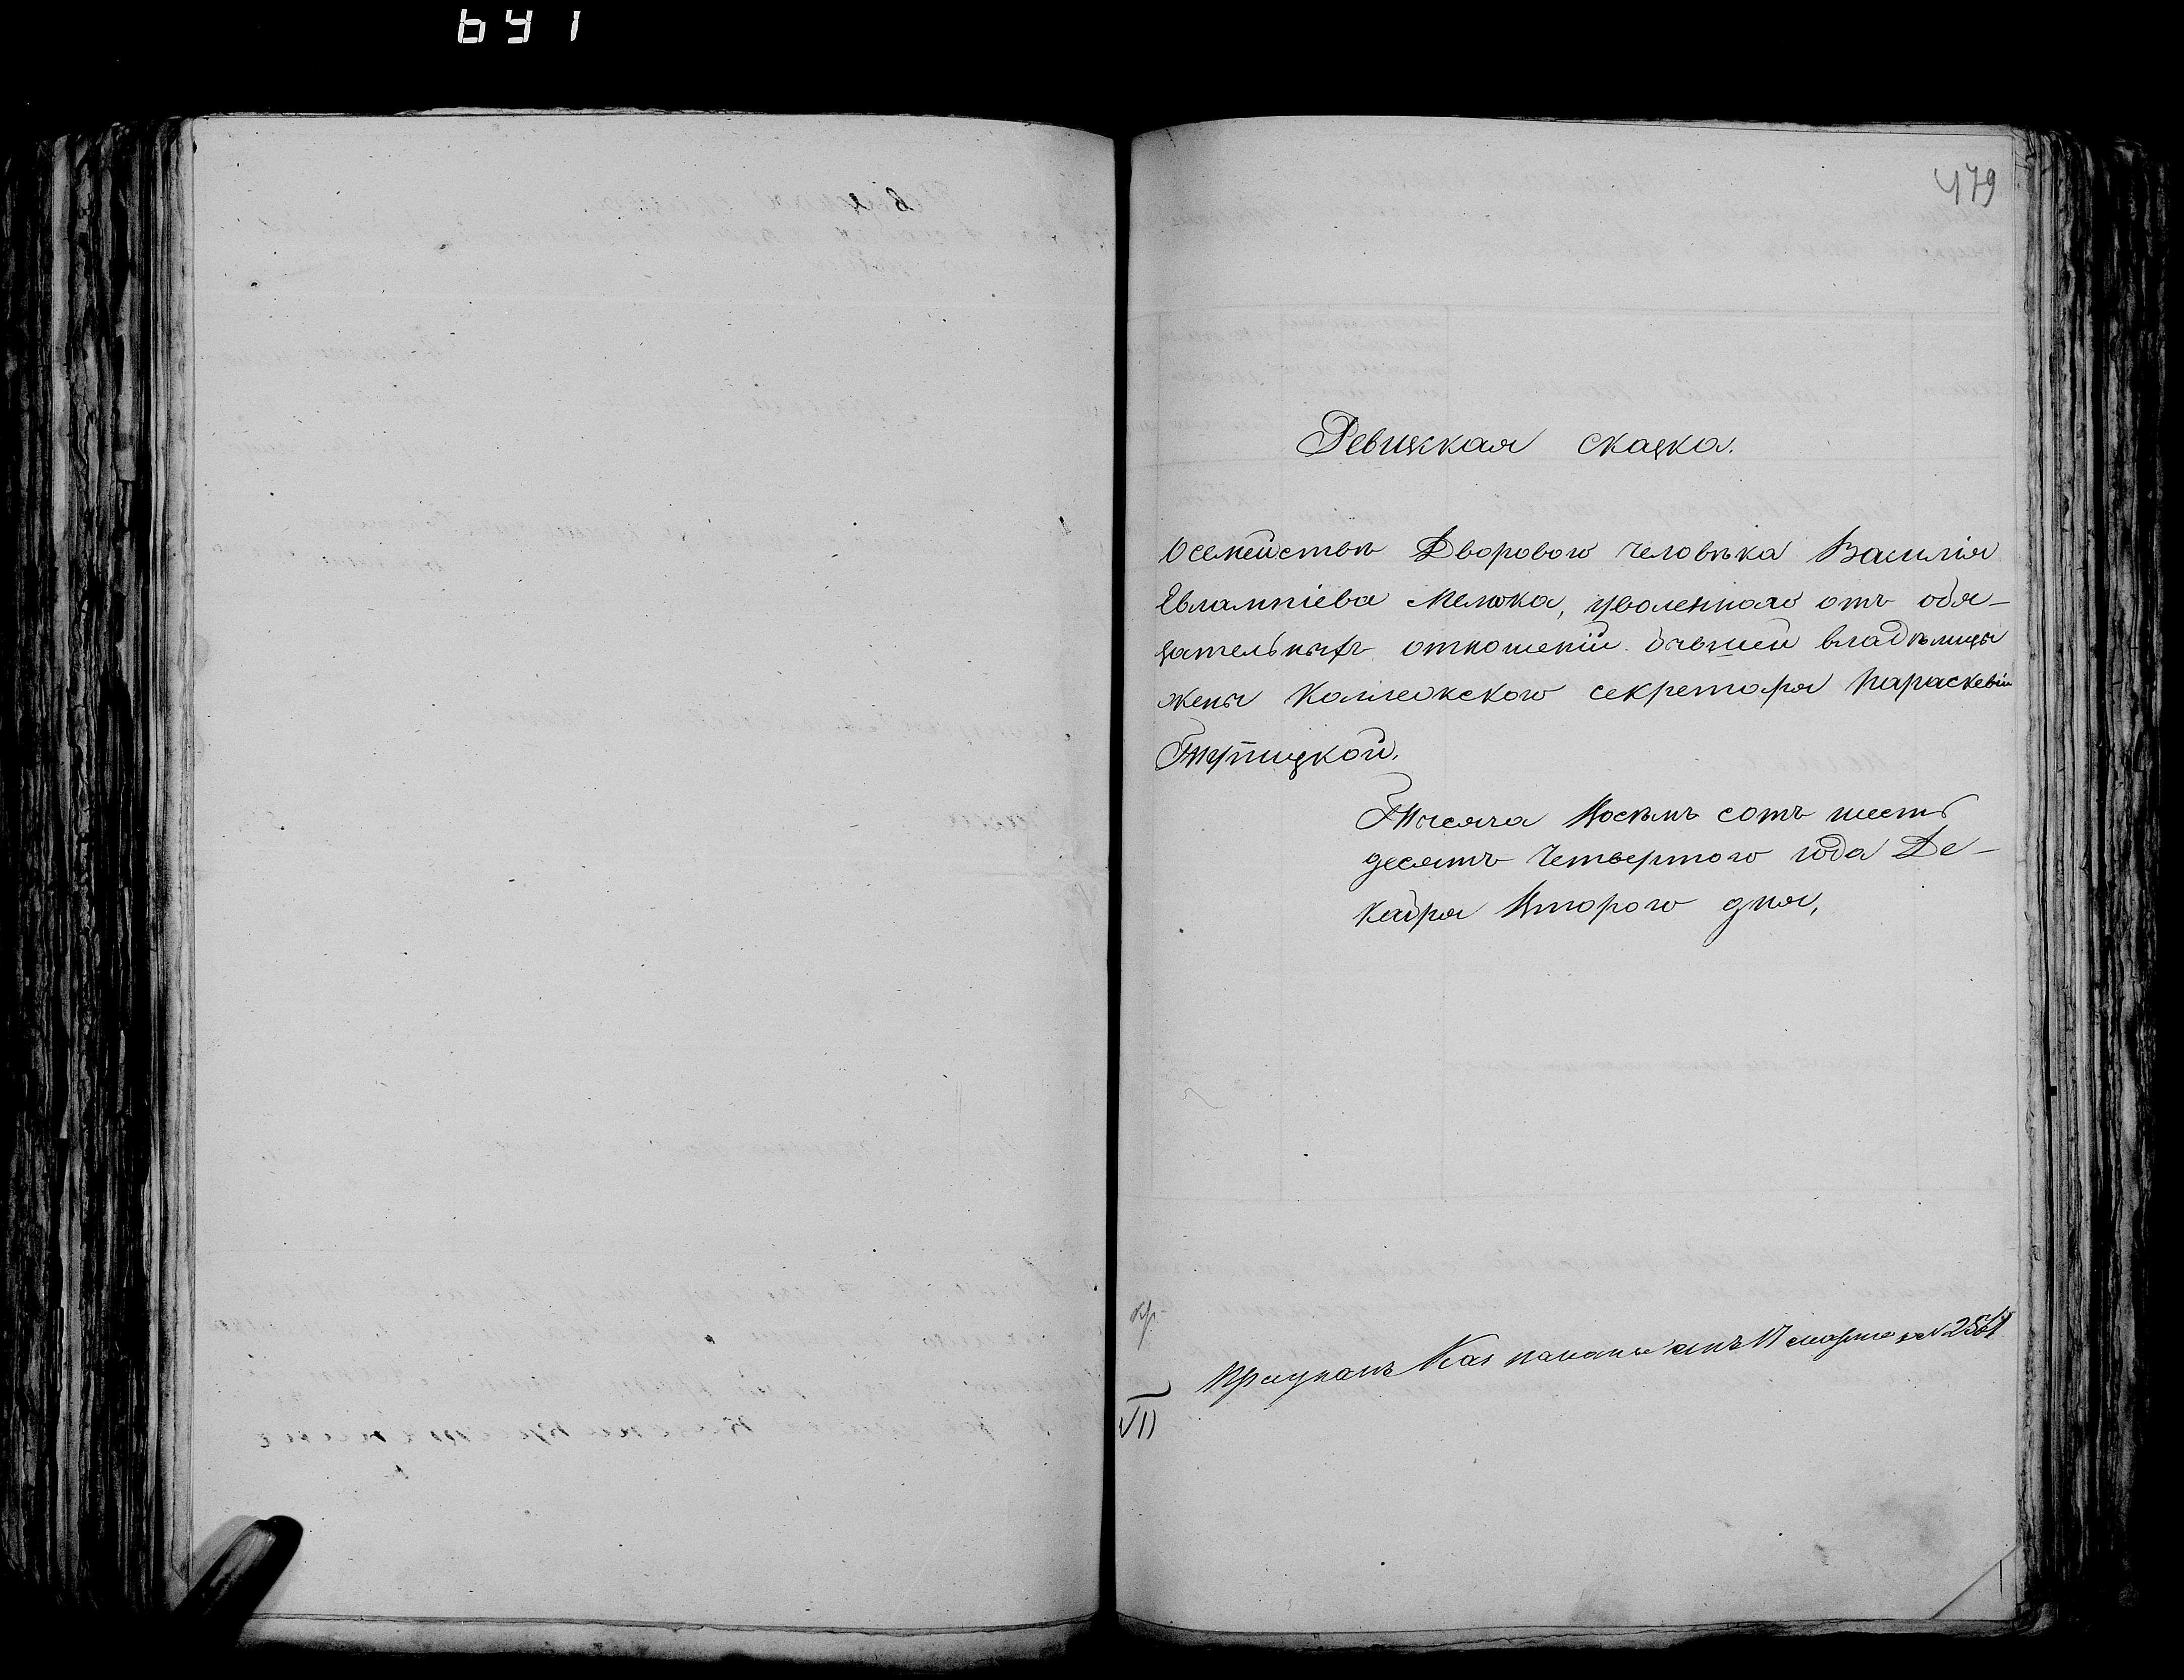 691
479
Ревизская сказка.
О семействѣ Двороваго человѣка Василія
Евлампіева Мелюка, уволеннаго отъ обя-
зательныхъ отношеній бывшей владѣлицы
жены Коллежскаго секретаря Параскевіи
Тупицкой.
Тысяча Восемь сотъ шесть
десятъ Четвертаго года Де-
кабря Втораго дня,
Каз палаты отъ 17 марта № 2561
VII